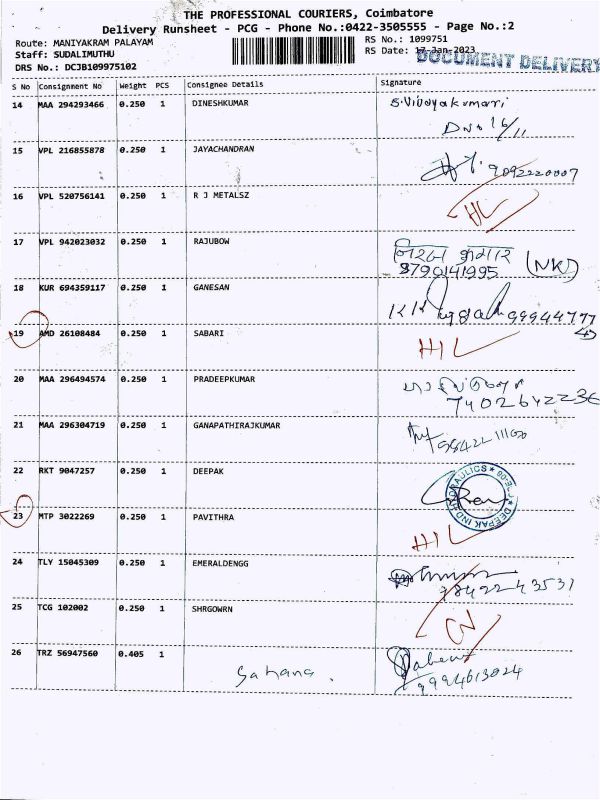 THE PROFESSIONAL COURIERS, Coimbatore
Delivery Runsheet - PCG - Phone No.:0422-3505555 - Page No.:2
Route: MANIYAKRAM PALAYAM
Staff: SUDALIMUTHU
DRS No.: DCJB109975102
RS No.: 1099751
RS Date: 17-Jan-2023
DOCUMENT DELIVERY
S No Consignment No Weight PCS Consignee Details Signature
14 MAA 294293466 0.250 1 DINESHKUMAR S.Vijayakumari
D.No 16/11
15 VPL 216855878 0.250 1 JAYACHANDRAN 9092220007
16 VPL 520756141 0.250 1 R J METALSZ HL
17 VPL 942023032 0.250 1 RAJUBOW
8790141995 (NK)
18 KUR 694359117 0.250 1 GANESAN
19 AMD 26108484 0.250 1 SABARI HIL
20 MAA 296494574 0.250 1 PRADEEPKUMAR
7402642236
21 MAA 296304719 0.250 1 GANAPATHIRAJKUMAR
22 RKT 9047257 0.250 1 DEEPAK
23 MTP 3022269 0.250 1 PAVITHRA HIL
24 TLY 15045309 0.250 1 EMERALDENGG
7842243531
25 TCG 102002 0.250 1 SHRGOWRN
26 TRZ 56947560 0.405 1
Sahana.
9994613024